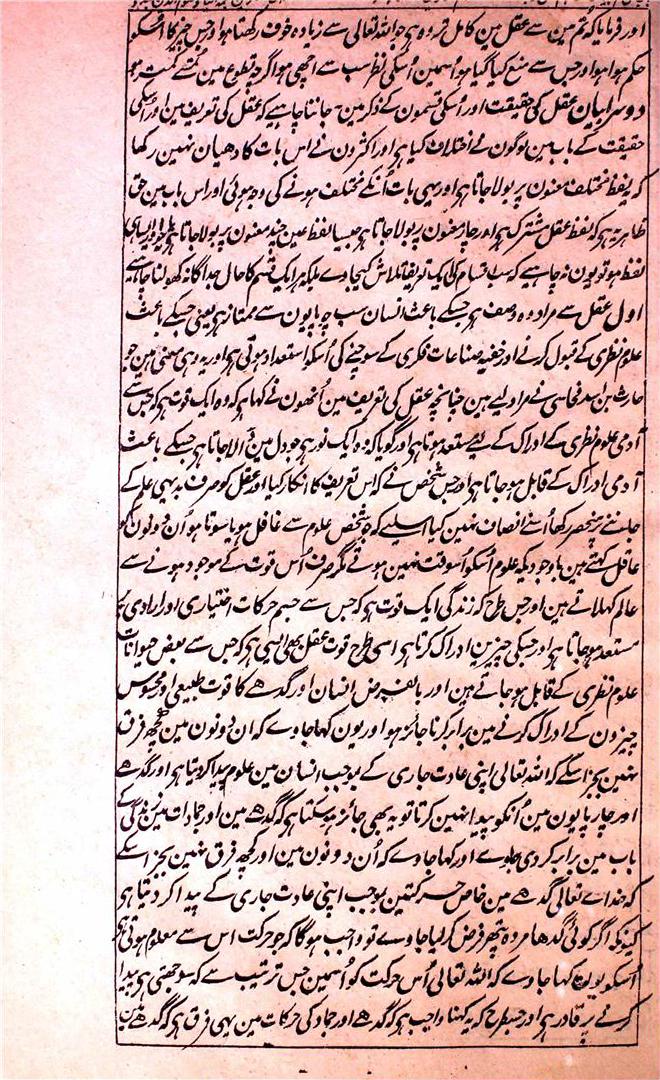 اور فرمایا کہ تم مین سے عقل مین کامل تر وہ ہی جو اللہ تعالی سے زیادہ خوف رکھتا ہو اور جس چیز کا اُسکو
حکم ہوا ہو اور جس سے منع کیا گیا ہو اُسمین اُسکی نظر سب سے اچھی ہو اگرچہ تطوع مین تمسے کمتر ہو
دوسرا بیان عقل کی حقیقت اور اُسکی قسمون کے ذکر مین۔ جاننا چاہیے کہ عقل کی تعریف مین اور اُسکی
حقیقت کے باب مین لوگون نے اختلاف کیا ہی اور اکثرون نے اس بات کا دھیان نہین رکھا
کہ یہ لفظ مختلف معنون پر بولا جاتا ہی اور یہی بات اُنکے مختلف ہونے کی وجہ ہوئی اور اس باب مین حق
ظاہر یہ ہی کہ لفظ عقل مشترک ہی اور چار معنون پر بولا جاتا ہی جیسا لفظ عین چند معنون پر بولا جاتا ہی
لفظ ہو تو یون نہ چاہیے کہ سب اقسام کی ایک تعریف تلاش کیجاوے بلکہ ہر ایک قسم کا حال جداگانہ کھولنا چاہیے
اول عقل سے مراد وہ وصف ہی جسکے باعث انسان سب چوپایون سے ممتاز ہی یعنی جسکے باعث
علوم نظری کے قبول کرنے اور خفیہ صناعات فکری کے سوچنے کی اُسکو استعداد ہوتی ہی اور یہ وہی معنی ہین جو
حارث بن اسد محاسبی نے مراد لیے ہین چنانچہ عقل کی تعریف مین اُنھون نے کہا ہی کہ وہ ایک قوت ہی کہ جس سے
آدمی علوم نظری کے ادراک کے لیے مستعد ہوتا ہی اور گویا کہ وہ ایک نور ہی جو دل مین ڈالا جاتا ہی جسکے باعث
آدمی ادراک کے قابل ہو جاتا ہی اور جس شخص نے کہ اس تعریف کا انکار کیا اور عقل کو صرف بدیہی علم کے
جاننے پر منحصر رکھا اُسنے انصاف نہین کیا اسلیے کہ جو شخص علوم سے غافل ہو یا سوتا ہو اُن دونون کو
عاقل کہتے ہین باوجودیکہ علوم اُسکو اُسوقت نہین ہوتے مگر صرف اُس قوت کے موجود ہونے سے
عالم کہلاتے ہین اور جس طرح کہ زندگی ایک قوت ہی کہ جس سے جسم حرکات اختیاری اور ارادی پر
مستعد ہو جاتا ہی اور حسکی چیزین ادراک کرتا ہی اسی طرح قوت عقل بھی ایسی ہی کہ جس سے بعض حیوانات
علوم نظری کے قابل ہو جاتے ہین اور بالفرض انسان اور گدھے کا قوت طبیعی اور محسوس
چیزون کے ادراک کرنے مین برابر کرنا جائز ہو اور یون کہا جاوے کہ ان دونون مین کچھ فرق
نہین بجز اسکے کہ اللہ تعالی اپنی عادت جاری کے بموجب انسان مین علوم پیدا کر دیتا ہی اور گدھے
اور چارپایون مین اُنکو پیدا نہین کرتا تو یہ بھی جائز ہو سکتا ہی کہ گدھے مین اور جمادات مین زندگی کے
باب مین برابر کر دی جاوے اور کہا جاوے کہ اُن دونون مین اور کچھ فرق نہین بجز اسکے
کہ خداے تعالی گدھے مین خاص حرکتین بموجب اپنی عادت جاری کے پیدا کر دیتا ہی
کیونکہ اگر کوئی گدھا مردہ پتھر فرض کر لیا جاوے تو واجب ہوگا کہ جو حرکت اس سے معلوم ہوتی ہی
اُسکو یون کہا جاوے کہ اللہ تعالی اُس حرکت کو اُسمین جس ترتیب سے کہ سوجھتی ہی پیدا
کرنے پر قادر ہی اور جسطرح کہ یہ کہنا واجب ہی کہ گدھے اور جماد کی حرکات مین یہی فرق ہی کہ گدھے مین